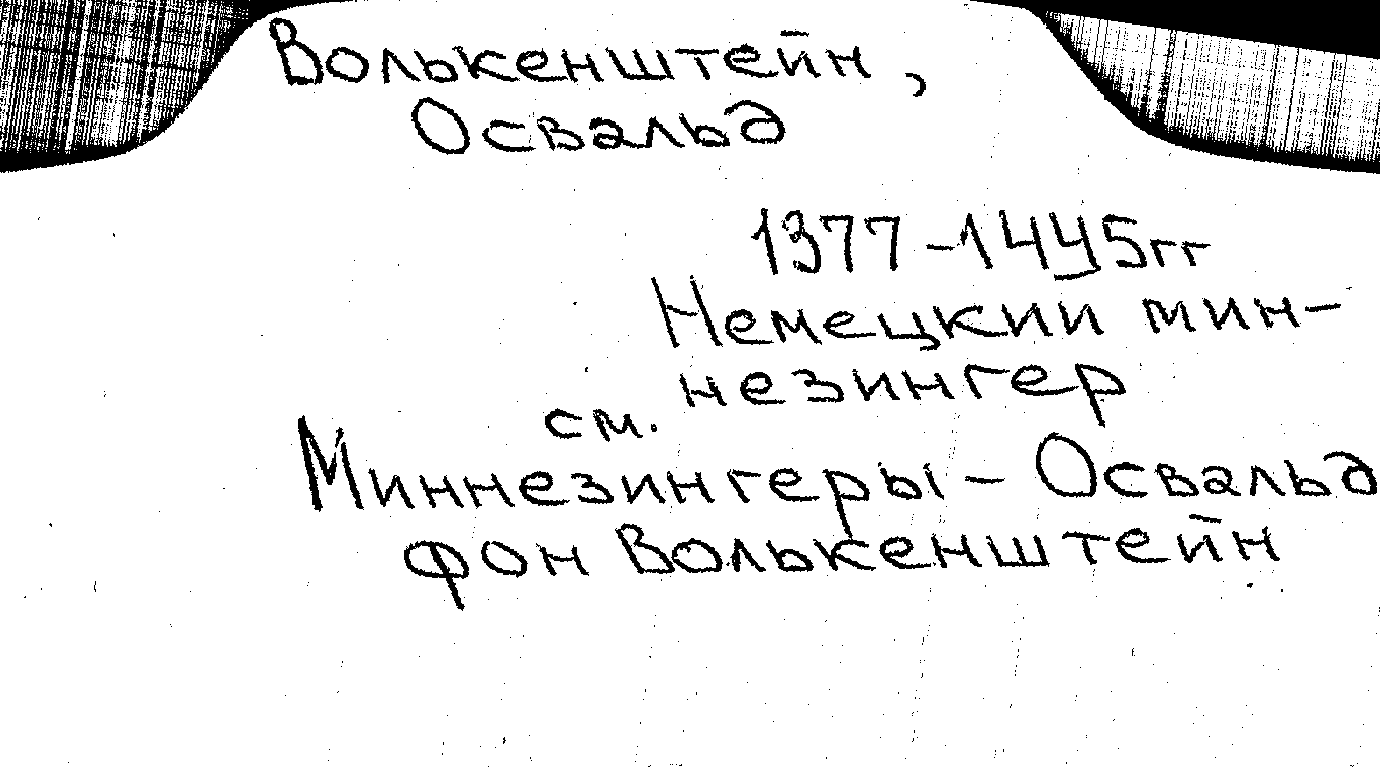 Волькенштейн,
Освальд
1377-1445гг
Немецкий мин-
незингер
см.
Миннезингеры - Освальд
фон Волькенштейн